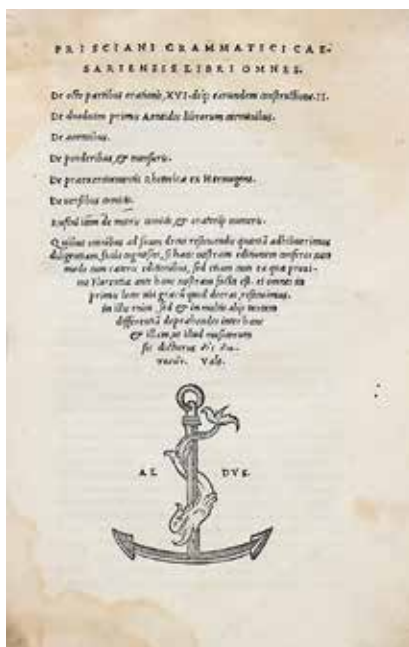 PRISCIANI GRAMMATICI CAE-
SARIENSIS LIBRI OMNES.
De octo partibus orationis, XVI. deq; earundem constructione. II.
De duodecim primis Aeneidos librorum carminibus.
De accentibus.
De ponderibus, & mensuris.
De praeexercitamentis Rhetoricae ex Hermogene.
De versibus comicis.
Rufini item de metris comicis, & oratoriis numeris.
Quibus omnibus ad suam
diligentiam, facile cognosces, si hanc nostram editionem conferes non
modo cum caeteris editionibus, sed etiam cum ea quae proxi-
me Florentiae ante hanc nostram facta est. et omnes in
primis
in illis enim, sed & in multis aliis
differentiam deprahendes inter hanc
& illam, ut illud
Vale.
AL DVS.